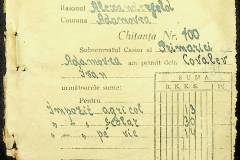 Raionul Alexanderfeld
Comuna Adamovca
Chitanţa Nr. 100
Subsemnatul Casier al Primăriei
Adamovca am primit dela Covalev
Ivan
următoarele sume:
SUMA
Pentru
Impozit agricol 13
" " şcolar 30
" pe vie 14